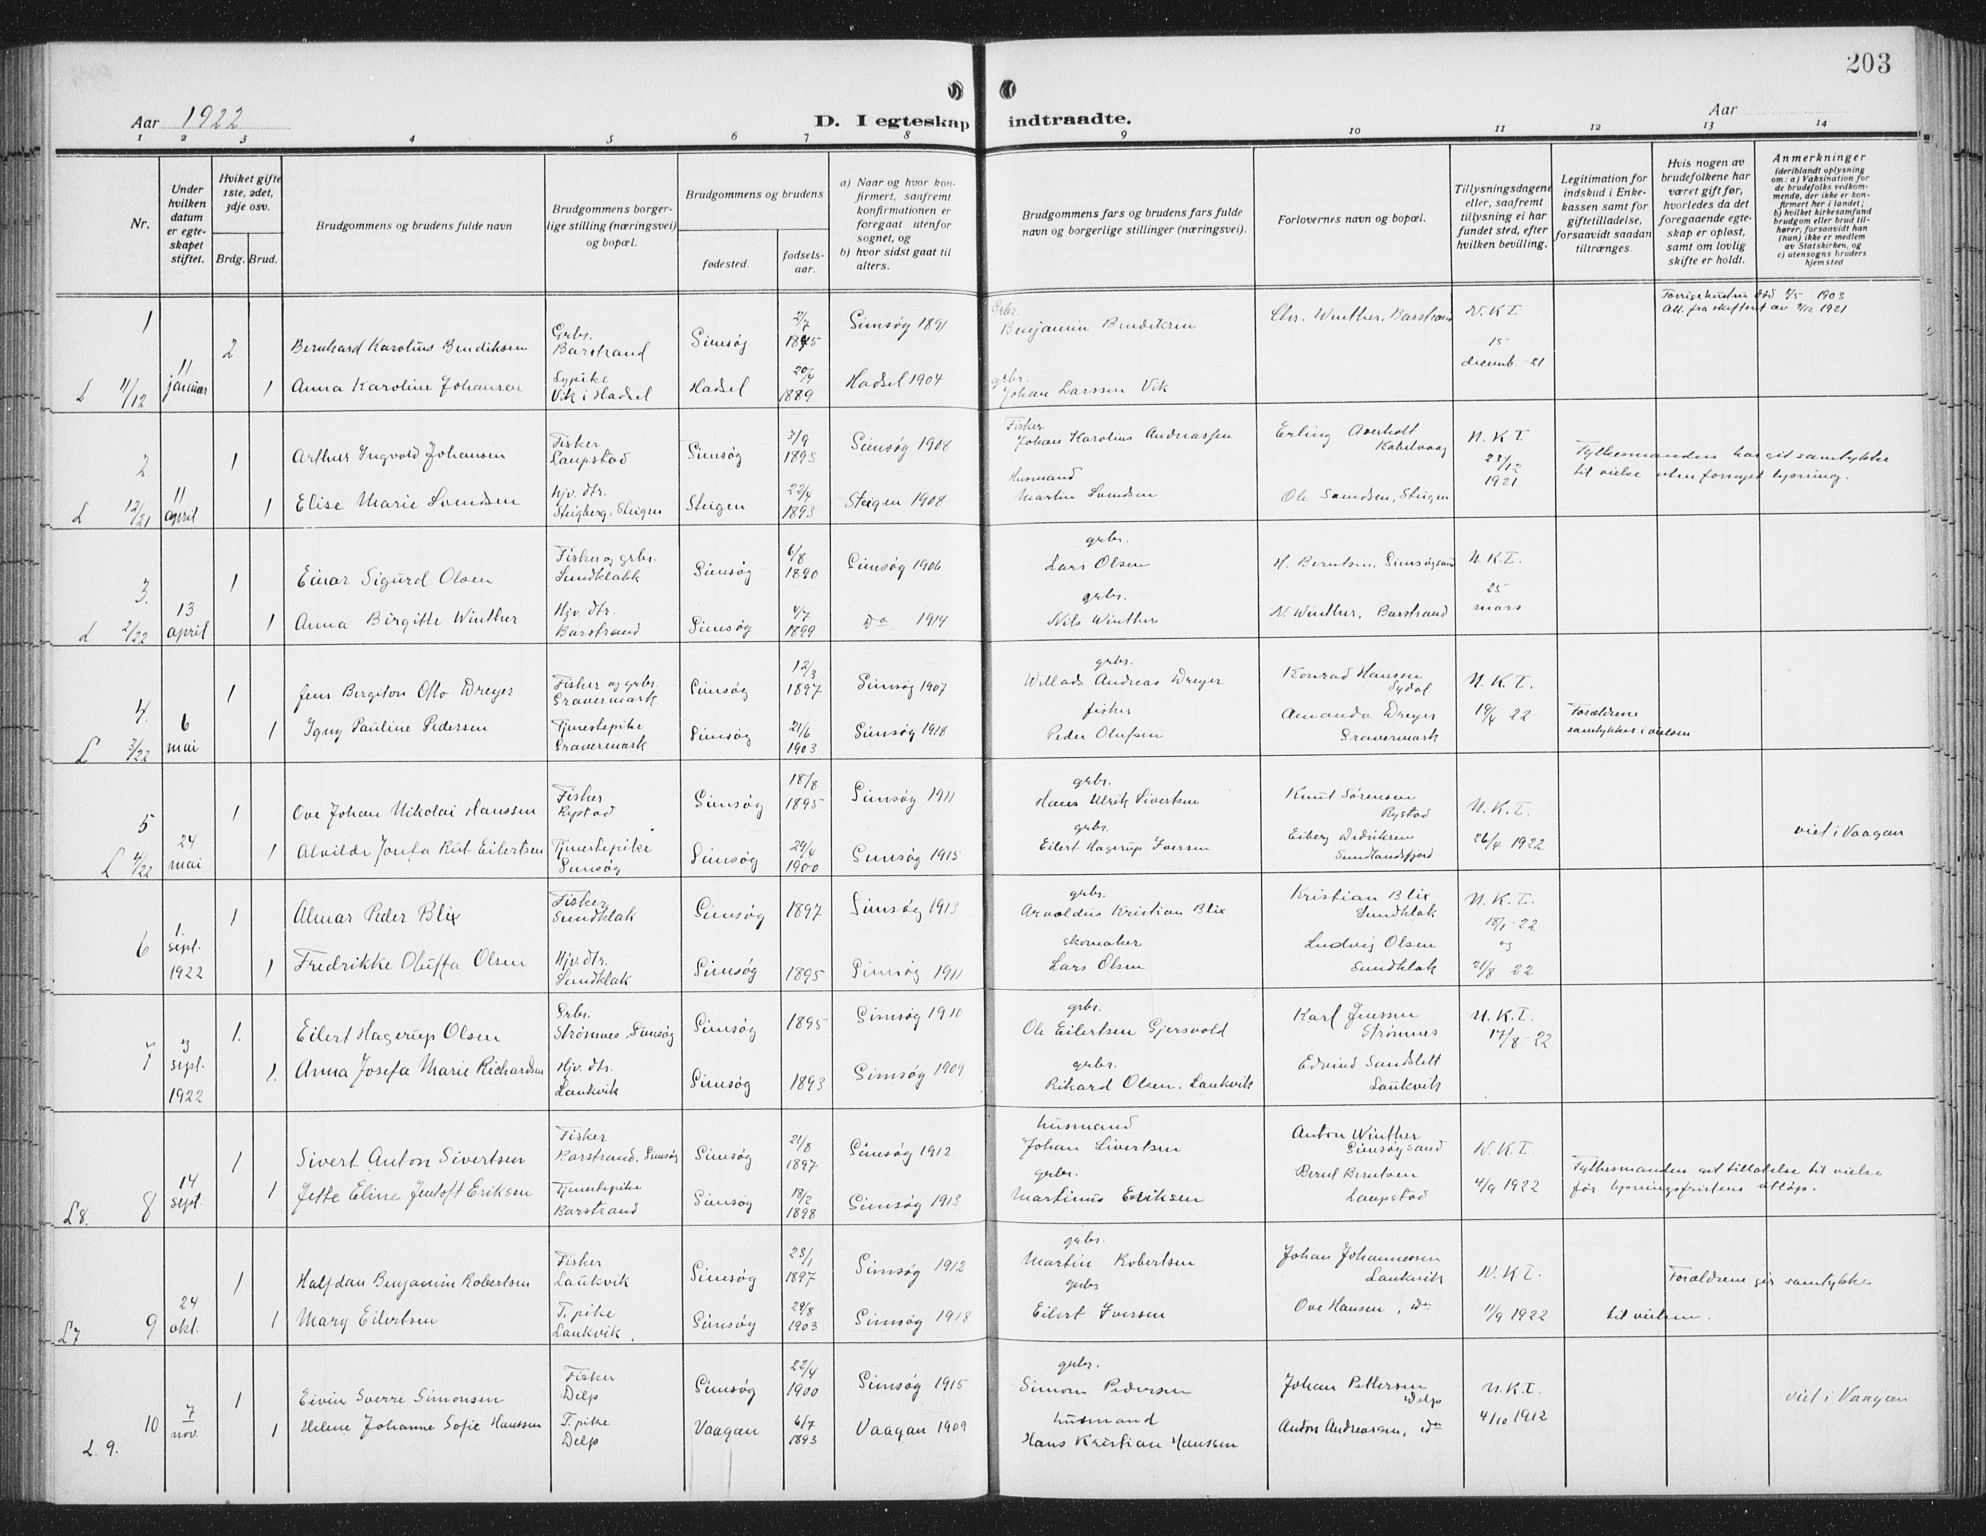 203
Aar 1922
D. I egteskap indtraadte.
Aar
1 2 3 4 5 6 7 8 9 10 11 12 13 14
Nr.
Under hvilken datum er egteskapet stiftet.
Hviket gifte 1ste, 2det, 3dje osv.
Brdg. Brud.
Brudgommens og brudens fulde navn
Brudgommens borgerlige stilling (næringsvei) og bopæl.
Brudgommens og brudens
fødested.
fødselsaar.
a) Naar og hvor konfirmert, saafremt konfirmationen er foregaat utenfor sognet, og
b) hvor sidst gaat til alters.
Brudgommens fars og brudens fars fulde navn og borgerlige stillinger (næringsvei).
Forlovernes navn og bopæl.
Tillysningsdagene eller, saafremt tillysning ei har fundet sted, efter hvilken bevilling.
Legitimation for indskud i Enkekassen samt for giftetilladelse, forsaavidt saadan tiltrænges.
Hvis nogen av brudefolkene har været gift før, hvorledes da det foregaaende egteskap er opløst, samt om lovlig skifte er holdt.
Anmerkninger (deriblandt oplysning om: a) Vaksination for de brudefolks vedkommende, der ikke er konfirmert her i landet; b) hvilket kirkesamfund brudgom eller brud tilhører, forsaavidt han (hun) ikke er medlem av Statskirken, og c) utensogns bruders hjemsted
1 2 Bernhard Karolius Bendiksen Grbr. Barstrand Gimsøy 2/7 1875 Gimsøy 1891 Grbr. Benjamin Bendiksen Chr. Winther, Barstrand N.K.T. 15 decemb. 21 Forrige hustru død 1903 Att. fra skifteret av 1921
L 11/12 11 januar 1 Anna Karoline Johansen Sypike Vik i Hadsel Hadsel 20/4 1889 Hadsel 1904 grbr. Johan Larssen Vik
2 1 Arthur Ingvold Johansen Fisker Laupstad Gimsøy 3/9 1893 Gimsøy 1908 Fisker Johan Karolius Andreassen Erling Averholt Kabelvaag N.K.T. 23/12 1921 Fylkesmanden har git samtykke til vielse uten fornyet lysning.
L 12/21 11 april 1 Elise Marie Svendsen Hjv. dtr. Steigberg, Steigen Steigen 22/4 1893 Steigen 1908 Husmand Martin Svendsen Ole Svendsen, Steigen
3. 1 Einar Sigurd Olsen Fisker og grbr. Sundklakk Gimsøy 6/8 1890 Gimsøy 1906 grbr. Lars Olsen H. Berntsen, Gimsøysand N.K.T. 25 mars
L 2/22 13 april 1 Anna Birgitte Winther Hjv. dtr. Barstrand Gimsøy 4/7 1899 Do 1914 grbr. Nils Winther N. Winther, Barstrand
4. 1 Jens Bergiton Otto Dreyer Fisker og grbr. Gravermark Gimsøy 12/3 1897 Gimsøy 1907 grbr. Willads Andreas Dreyer Konrad Hanssen Sydal N.K.T. 19/4 22 Forældrene samtykker i vielsen
L 3/22 6 mai 1 Igny Pauline Pedersen Tjenestepike Gravermark Gimsøy 21/6 1903 Gimsøy 1918 fisker Peder Olufsen Amanda Dreyer Gravermark
5 1 Ove Johan Nikolai Hanssen Fisker Rystad Gimsøy 18/8 1895 Gimsøy 1911 grbr. Hans Ulrik Sivertsen Knut Sørensen Rystad N.K.T. 26/4 1922 viet i Vaagan
L 4/22 24 mai 1 Alvilde Josefa Rut Eilertsen Tjenestepike Gimsøy Gimsøy 29/4 1900 Gimsøy 1915 grbr. Eilert Hagerup Iversen Eiberg Didriksen Sundlandsfjord
6 1. sept. 1922 1 Almar Peder Blix Fisker Sundklak Gimsøy 1897 Gimsøy 1913 grbr. Arnoldus Kristian Blix Kristian Blix Sundklak N.K.T. 18/1 22 og 21/8 22
1 Fredrikke Oluffa Olsen Hjv. dtr. Sundklak Gimsøy 1895 Gimsøy 1911 skomaker Lars Olsen Ludvig Olsen Sundklak
7 3 sept. 1922 1. Eilert Hagerup Olsen Grbr. Strømnes, Gimsøy Gimsøy 1895 Gimsøy 1910 grbr. Ole Eilertsen Gjersvold Karl Jenssen Strømnes N.K.T. 17/8-22
1. Anna Josefa Marie Richardsen Hjv. dtr. Laukvik Gimsøy 1893 Gimsøy 1909 grbr. Rikard Olsen, Laukvik Edvind Sandslett Laukvik
1 Sivert Anton Sivertsen Fisker Barstrand, Gimsøy Gimsøy 21/8 1897 Gimsøy 1912 husmand Johan Sivertsen Anton Winther Gimsøysand N.K.T. 4/9 1922 Fylkesmanden git tillatelse til vielse før lysningsfristens utløp.
L 8. 8 14 sept. 1 Jette Eline Jentoft Eriksen Tjenestepike Barstrand Gimsøy 18/2 1898 Gimsøy 1913 grbr. Martinus Eriksen Bernt Berntsen Laupstad
1 Halfdan Benjamin Robertsen Fisker Laukvik Gimsøy 23/1 1897 Gimsøy 1912 grbr. Martin Robertsen Johan Johannessen Laukvik N.K.T. 11/9 1922 Forældrene gir samtykke til vielsen.
L 7 9 24 okt. 1 Mary Eilertsen T. pike Laukvik. Gimsøy 29/8 1903 Gimsøy 1918 grbr Eilert Iversen Ove Hansen, do
1 Eivin Sverre Simonsen Fisker Delp Gimsøy 22/4 1900 Gimsøy 1915 grbr. Simon Pedersen Johan Pettersen Delp N.K.T. 4/10 1912 viet i Vaagan
L 9. 10 7 nov. 1 Helene Johanne Sofie Hanssen T. pike Delp Vaagan 6/7 1893 Vaagan 1909 husmand Hans Kristian Hanssen Anton Andreassen, do